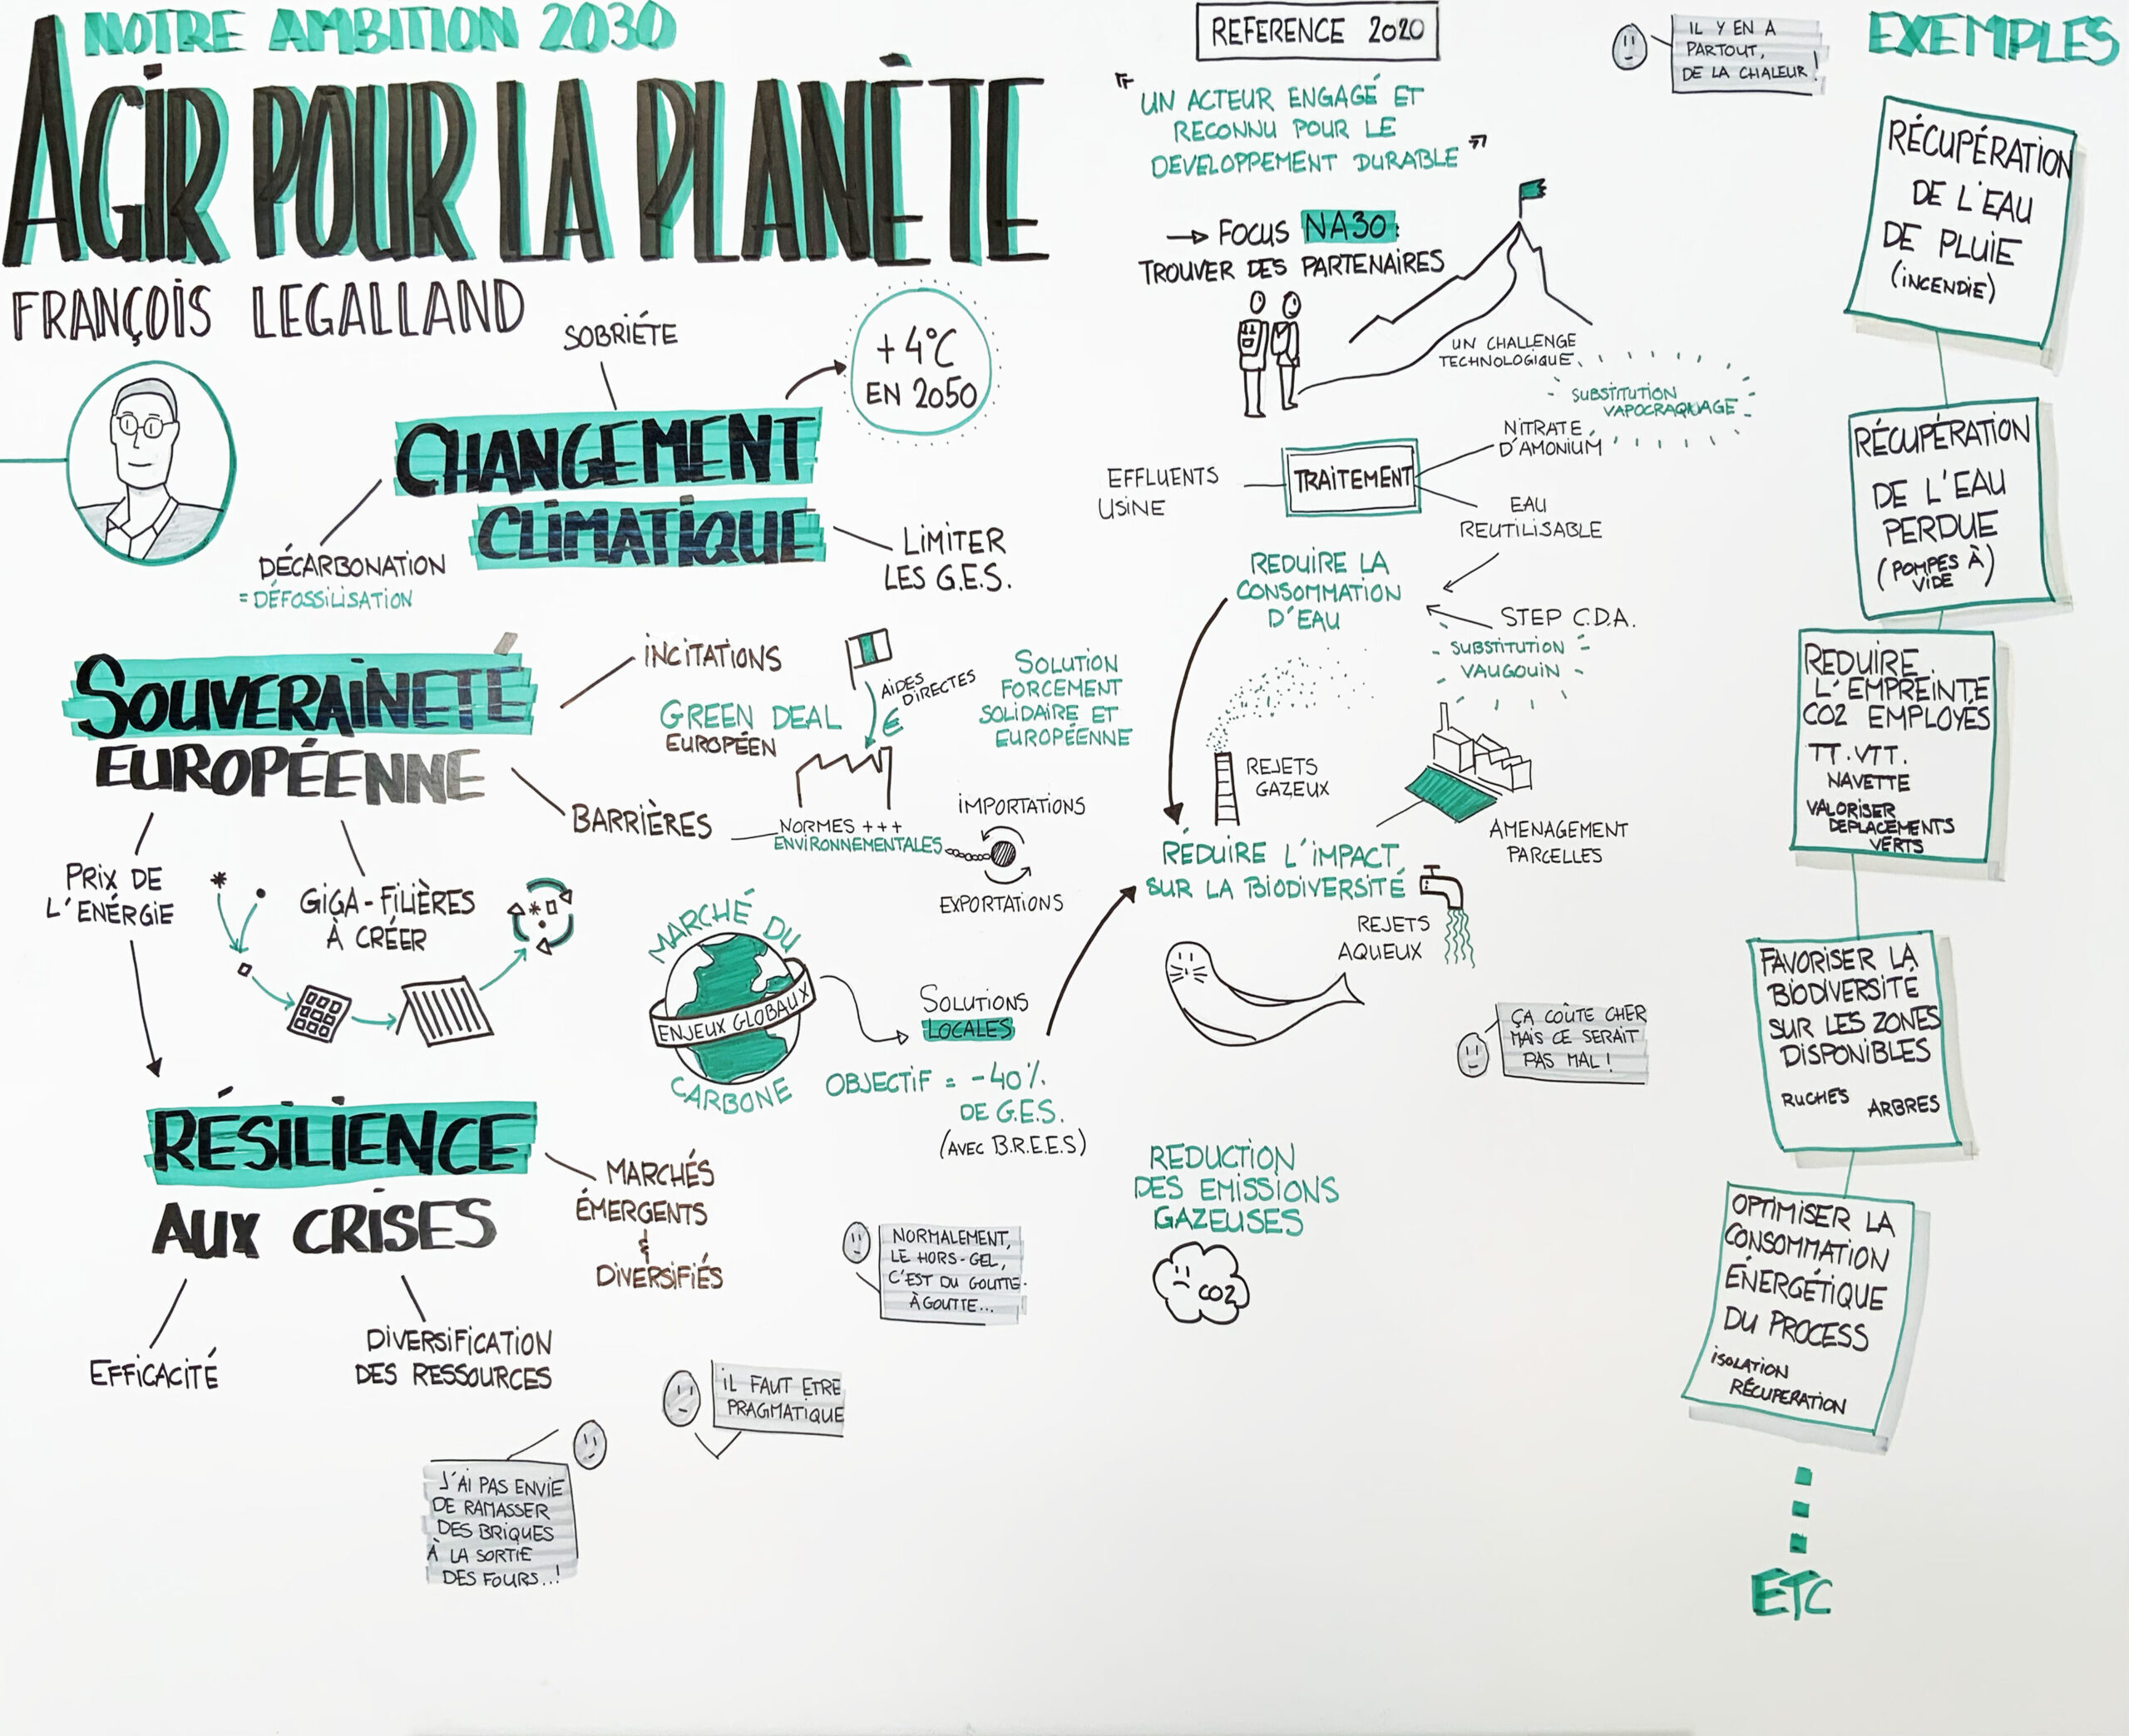 NOTRE AMBITION 2030
AGIR POUR LA PLANÈTE
FRANÇOIS LEGALLAND
SOBRIÉTE
+4°C
EN 2050
CHANGEMENT
CLIMATIQUE
DÉCARBONATION
= DÉFOSSILISATION
LIMITER
LES G.E.S.
SOUVERAINETÉ
EUROPÉENNE
INCITATIONS
GREEN DEAL
EUROPÉEN
AIDES
DIRECTES
€
SOLUTION
FORCEMENT
SOLIDAIRE ET
EUROPÉENNE
BARRIÈRES
NORMES +++
ENVIRONNEMENTALES
IMPORTATIONS
EXPORTATIONS
PRIX DE
L'ENÉRGIE
GIGA-FILIÈRES
À CRÉER
MARCHÉ DU
ENJEUX GLOBAUX
CARBONE
SOLUTIONS
LOCALES
OBJECTIF = -40%
DE G.E.S.
(AVEC B.R.E.E.S)
RÉSILIENCE
AUX CRISES
MARCHÉS
ÉMERGENTS
&
DIVERSIFIÉS
EFFICACITÉ
DIVERSIFICATION
DES RESSOURCES
NORMALEMENT,
LE HORS-GEL,
C'EST DU GOUTTE-
À GOUTTE...
IL FAUT ETRE
PRAGMATIQUE
J'AI PAS ENVIE
DE RAMASSER
DES BRIQUES
À LA SORTIE
DES FOURS...!
REFERENCE 2020
" UN ACTEUR ENGAGÉ ET
RECONNU POUR LE
DEVELOPPEMENT DURABLE "
→ FOCUS NA30:
TROUVER DES PARTENAIRES
UN CHALLENGE
TECHNOLOGIQUE
SUBSTITUTION
VAPOCRAQUAGE
EFFLUENTS
USINE
TRAITEMENT
NITRATE
D'AMONIUM
EAU
REUTILISABLE
REDUIRE LA
CONSOMMATION
D'EAU
STEP C.D.A.
SUBSTITUTION
VAUGOUIN
REJETS
GAZEUX
AMENAGEMENT
PARCELLES
RÉDUIRE L'IMPACT
SUR LA BIODIVERSITÉ
REJETS
AQUEUX
ÇA COÛTE CHER
MAIS CE SERAIT
PAS MAL !
REDUCTION
DES EMISSIONS
GAZEUSES
CO2
IL Y EN A
PARTOUT,
DE LA CHALEUR !
EXEMPLES
RÉCUPÉRATION
DE L'EAU
DE PLUIE
(INCENDIE)
RÉCUPÉRATION
DE L'EAU
PERDUE
(POMPES À
VIDE)
REDUIRE
L'EMPREINTE
CO2 EMPLOYÉS
TT.VTT.
NAVETTE
VALORISER
DEPLACEMENTS
VERTS
FAVORISER LA
BIODIVERSITÉ
SUR LES ZONES
DISPONIBLES
RUCHES ARBRES
OPTIMISER LA
CONSOMMATION
ÉNERGÉTIQUE
DU PROCESS
ISOLATION
RÉCUPERATION
ETC